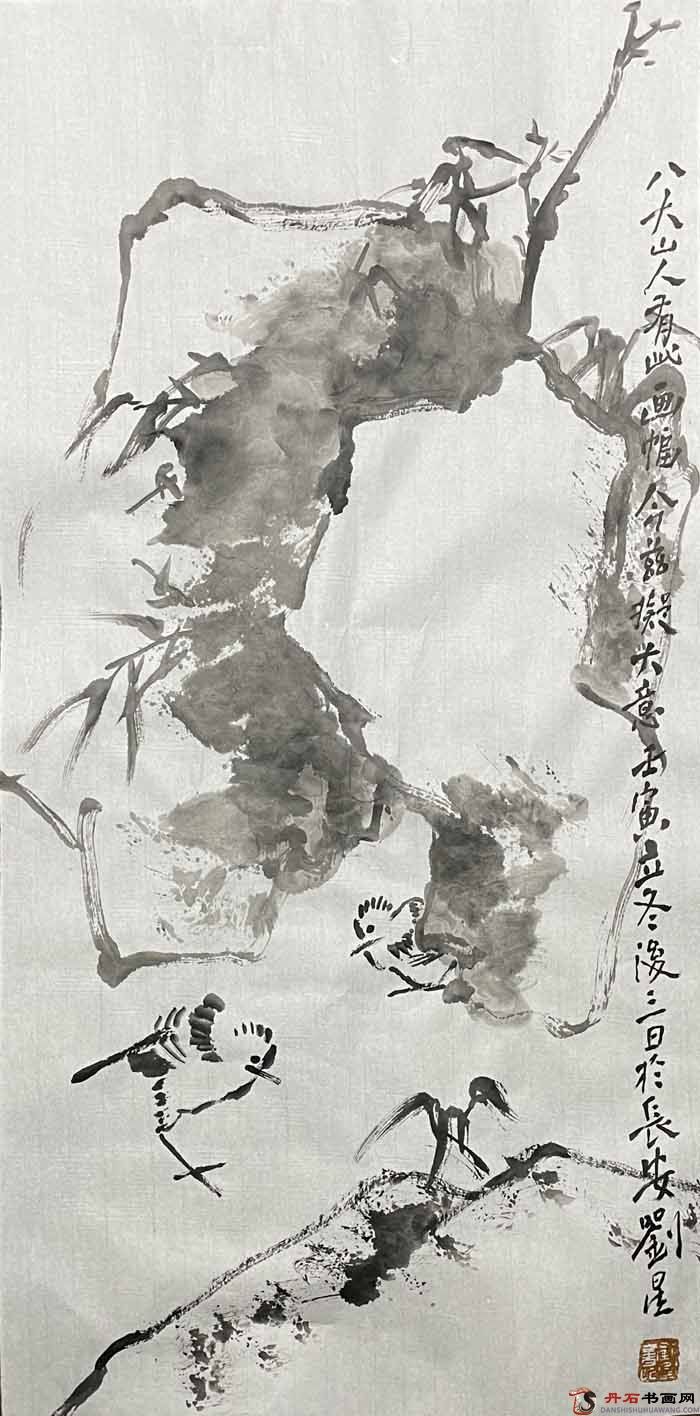 八大山人有此画幅今兹拟大意壬寅立冬後三日於長安劉星
丹石书画网
DANSHISHUHUAWANG.COM